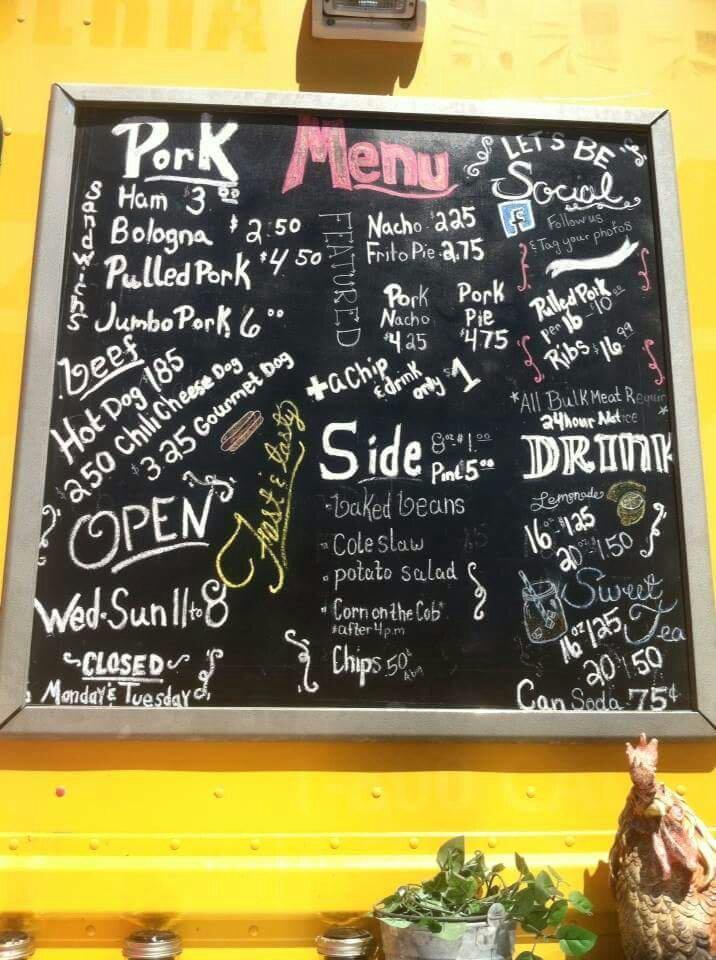 Menu
Pork
Sandwiches
Ham 3.00
Bologna $2.50
Pulled Pork $4.50
Jumbo Pork 6.00
beef
Hot Dog 1.85
$2.50 Chili Cheese Dog
$3.25 Gourmet Dog
Fast & tasty
OPEN
Wed-Sun 11 to 8
CLOSED
Monday & Tuesday
FEATURED
Nacho 2.25
Frito Pie 2.75
Pork Nacho $4.25
Pork Pie $4.75
+ a Chip & drink only $1
Side 8oz $1.00
Pint 5.00
baked beans
Coleslaw
potato salad
Corn on the Cob*
*after 4p.m
Chips .50¢
LET'S BE
Social
f Follow us
& Tag your photos
Pulled Pork
per lb 10.00
Ribs $16.99
*All Bulk Meat Requir
24 hour Notice *
DRINK
Lemonade
16oz $1.25
20oz 1.50
Sweet Tea
16oz 1.25
20 1.50
Can Soda 75¢